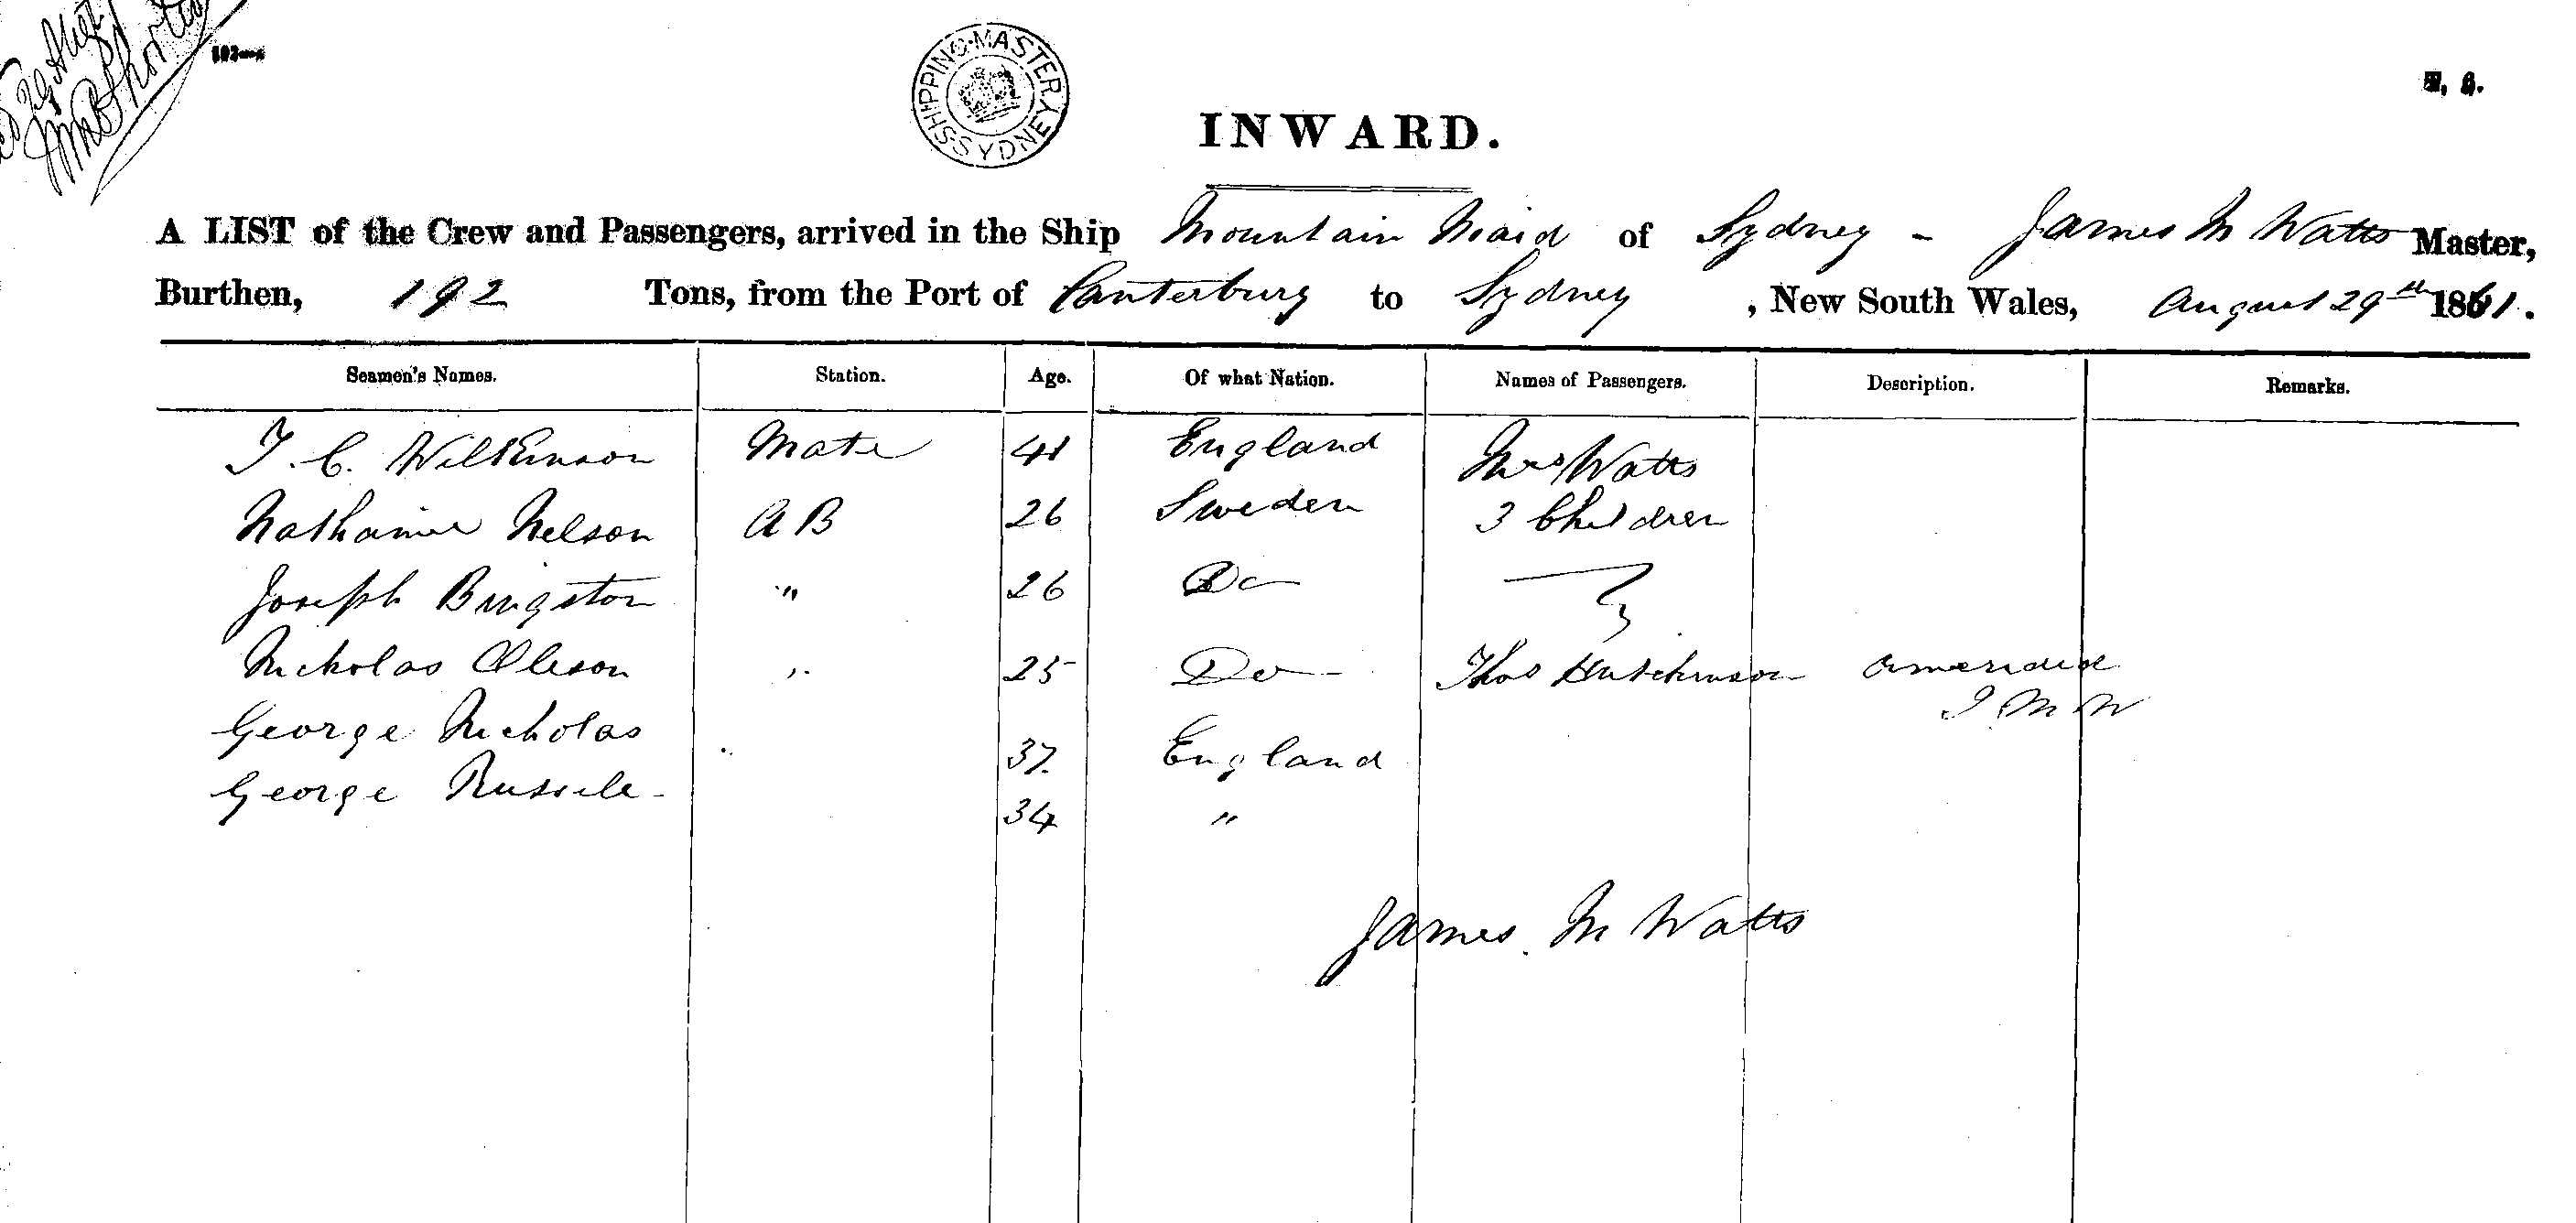 SHIPPING MASTER SYDNEY
INWARD.
A LIST of the Crew and Passengers, arrived in the Ship Mountain Maid of Sydney - James M Watts Master,
Burthen, 192 Tons, from the Port of Canterbury to Sydney, New South Wales, August 29th 1861.
Seamen's Names. Station. Age. Of what Nation. Names of Passengers. Description. Remarks.
T. C. Wilkinson Mate 41 England Mrs Watts
Nathaniel Nelson A B 26 Sweden 3 Children
Joseph Bringston " 26 Do
Nicholas Oleson " 25 Do Thos Hutchinson
J M W
George Nicholas 37. England
George Russell 34 "
James. M Watts